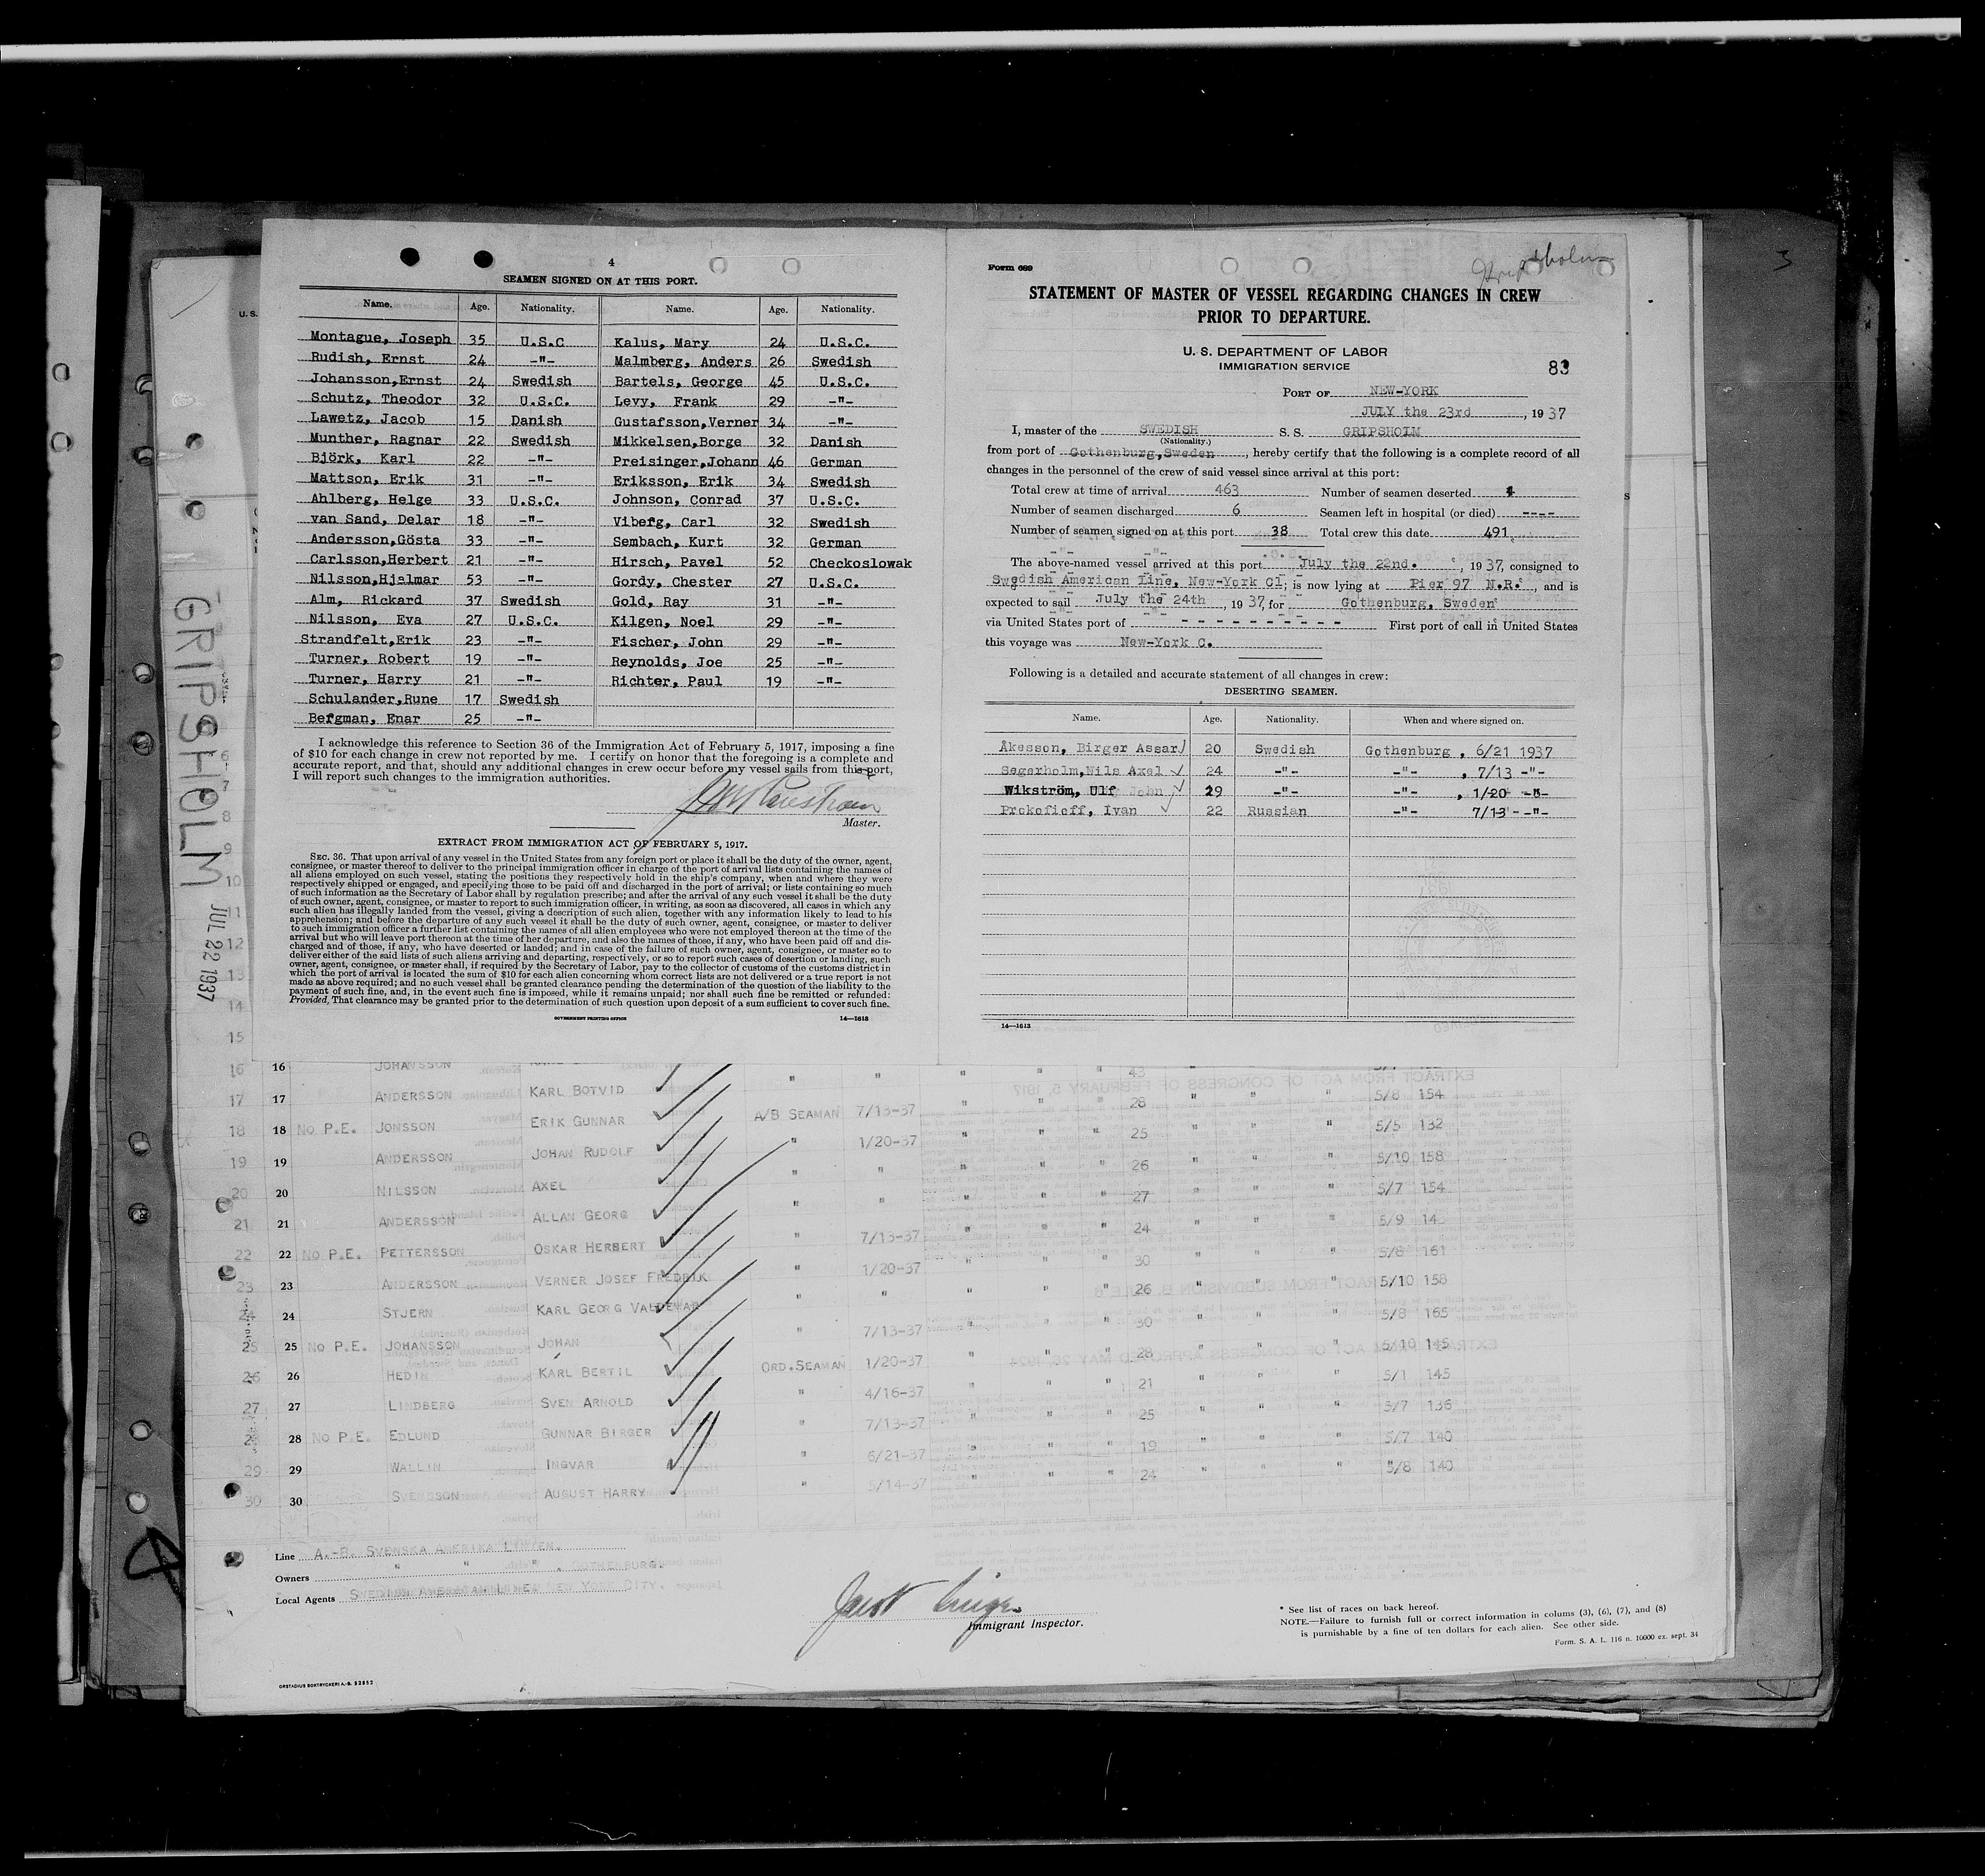 GRIPSHOLM JUL 22 1937
4
SEAMEN SIGNED ON AT THIS PORT.
Name. Age. Nationality. Name. Age. Nationality.
Montague, Joseph 35 U.S.C Kalus, Mary 24 U.S.C.
Rudish, Ernst 24 -"- Malmberg, Anders 26 Swedish
Johansson,Ernst 24 Swedish Bartels, George 45 U.S.C.
Schutz, Theodor 32 U.S.C. Levy, Frank 29 -"-
Lawetz, Jacob 15 Danish Gustafsson,Verner 34 -"-
Munther, Ragnar 22 Swedish Mikkelsen,Borge 32 Danish
Björk, Karl 22 -"- Preisinger,Johann 46 German
Mattson, Erik 31 -"- Eriksson, Erik 34 Swedish
Ahlberg, Helge 33 U.S.C. Johnson, Conrad 37 U.S.C.
van Sand, Delar 18 -"- Viberg, Carl 32 Swedish
Andersson,Gösta 33 -"- Sembach, Kurt 32 German
Carlsson,Herbert 21 -"- Hirsch, Pavel 52 Checkoslowak
Nilsson,Hjalmar 53 -"- Gordy, Chester 27 U.S.C.
Alm, Rickard 37 Swedish Gold, Ray 31 -"-
Nilsson, Eva 27 U.S.C. Kilgen, Noel 29 -"-
Strandfelt,Erik 23 -"- Fischer, John 29 -"-
Turner, Robert 19 -"- Reynolds, Joe 25 -"-
Turner, Harry 21 -"- Richter, Paul 19 -"-
Schulander,Rune 17 Swedish
Bergman, Enar 25 -"-
I acknowledge this reference to Section 36 of the Immigration Act of February 5, 1917, imposing a fine
of $10 for each change in crew not reported by me. I certify on honor that the foregoing is a complete and
accurate report, and that, should any additional changes in crew occur before my vessel sails from this port,
I will report such changes to the immigration authorities.
Master.
EXTRACT FROM IMMIGRATION ACT OF FEBRUARY 5, 1917.
SEC. 36. That upon arrival of any vessel in the United States from any foreign port or place it shall be the duty of the owner, agent,
consignee, or master thereof to deliver to the principal immigration officer in charge of the port of arrival lists containing the names of
all aliens employed on such vessel, stating the positions they respectively hold in the ship's company, when and where they were
respectively shipped or engaged, and specifying those to be paid off and discharged in the port of arrival; or lists containing so much
of such information as the Secretary of Labor shall by regulation prescribe; and after the arrival of any such vessel it shall be the duty
of such owner, agent, consignee, or master to report to such immigration officer, in writing, as soon as discovered, all cases in which any
such alien has illegally landed from the vessel, giving a description of such alien, together with any information likely to lead to his
apprehension; and before the departure of any such vessel it shall be the duty of such owner, agent, consignee, or master to deliver
to such immigration officer a further list containing the names of all alien employees who were not employed thereon at the time of the
arrival but who will leave port thereon at the time of her departure, and also the names of those, if any, who have been paid off and dis-
charged and of those, if any, who have deserted or landed; and in case of the failure of such owner, agent, consignee, or master so to
deliver either of the said lists of such aliens arriving and departing, respectively, or so to report such cases of desertion or landing, such
owner, agent, consignee, or master shall, if required by the Secretary of Labor, pay to the collector of customs of the customs district in
which the port of arrival is located the sum of $10 for each alien concerning whom correct lists are not delivered or a true report is not
made as above required; and no such vessel shall be granted clearance pending the determination of the question of the liability to the
payment of such fine, and, in the event such fine is imposed, while it remains unpaid; nor shall such fine be remitted or refunded:
Provided, That clearance may be granted prior to the determination of such question upon deposit of a sum sufficient to cover such fine.
GOVERNMENT PRINTING OFFICE 14—1613
Form 689
Gripsholm
STATEMENT OF MASTER OF VESSEL REGARDING CHANGES IN CREW
PRIOR TO DEPARTURE.
U. S. DEPARTMENT OF LABOR
IMMIGRATION SERVICE
83
PORT OF NEW-YORK
JULY the 23rd , 1937
I, master of the SWEDISH S. S. GRIPSHOLM
(Nationality.)
from port of Gothenburg,Sweden , hereby certify that the following is a complete record of all
changes in the personnel of the crew of said vessel since arrival at this port:
Total crew at time of arrival 463 Number of seamen deserted 4
Number of seamen discharged 6 Seamen left in hospital (or died) ----
Number of seamen signed on at this port 38 Total crew this date 491
The above-named vessel arrived at this port July the 22nd. , 1937, consigned to
Swedish American Line, New-York CI; is now lying at Pier 97 N.R. , and is
expected to sail July the 24th , 1937, for Gothenburg, Sweden
via United States port of - - - - - - - - - - First port of call in United States
this voyage was New-York C.
Following is a detailed and accurate statement of all changes in crew:
DESERTING SEAMEN.
Name. Age. Nationality. When and where signed on.
Åkesson, Birger Assar 20 Swedish Gothenburg , 6/21 1937
Segerholm,Nils Axel 24 -"- -"- , 7/13 -"-
Wikström, Ulf John 29 -"- -"- , 1/20 -"-
Prokofieff, Ivan 22 Russian -"- 7/13 -"-
14—1613
16 16 JOHANSSON " " " " 43
17 17 ANDERSSON KARL BOTVID " " " 28 " " " 5/8 154
18 18 NO P.E. JONSSON ERIK GUNNAR A/B SEAMAN 7/13-37 " " " 25 " " " 5/5 132
19 19 ANDERSSON JOHAN RUDOLF " 1/20-37 " " " 26 " " " 5/10 158
20 20 NILSSON AXEL " " " " " 27 " " " 5/7 154
21 21 ANDERSSON ALLAN GEORG " " " " " 24 " " " 5/9 145
22 22 NO P.E. PETTERSSON OSKAR HERBERT " 7/13-37 " " " 30 " " " 5/8 161
23 23 ANDERSSON VERNER JOSEF FREDRIK " 1/20-37 " " " 26 " " " 5/10 158
24 24 STJERN KARL GEORG VALDEMAR " " " " " 30 " " " 5/8 165
25 25 NO P.E. JOHANSSON JOHAN " 7/13-37 " " " 28 " " " 5/10 145
26 26 HEDIN KARL BERTIL ORD.SEAMAN 1/20-37 " " " 21 " " " 5/1 145
27 27 LINDBERG SVEN ARNOLD " 4/16-37 " " " 25 " " " 5/7 136
28 28 NO P.E. EDLUND GUNNAR BIRGER " 7/13-37 " " " 19 " " " 5/7 140
29 29 WALLIN INGVAR " 6/21-37 " " " 24 " " " 5/8 140
30 30 SVENSSON AUGUST HARRY " 5/14-37
Line A.-B. SVENSKA AMERIKA LINIEN.
Owners " " " , GOTHENBURG.
Local Agents SWEDISH AMERICAN LINE, NEW YORK CITY.
Immigrant Inspector.
* See list of races on back hereof.
NOTE.—Failure to furnish full or correct information in colums (3), (6), (7), and (8)
is punishable by a fine of ten dollars for each alien. See other side.
Form. S. A. L. 116 n. 10000 ex. sept. 34
ORSTADIUS BOKTRYCKERI A.-B. 52852